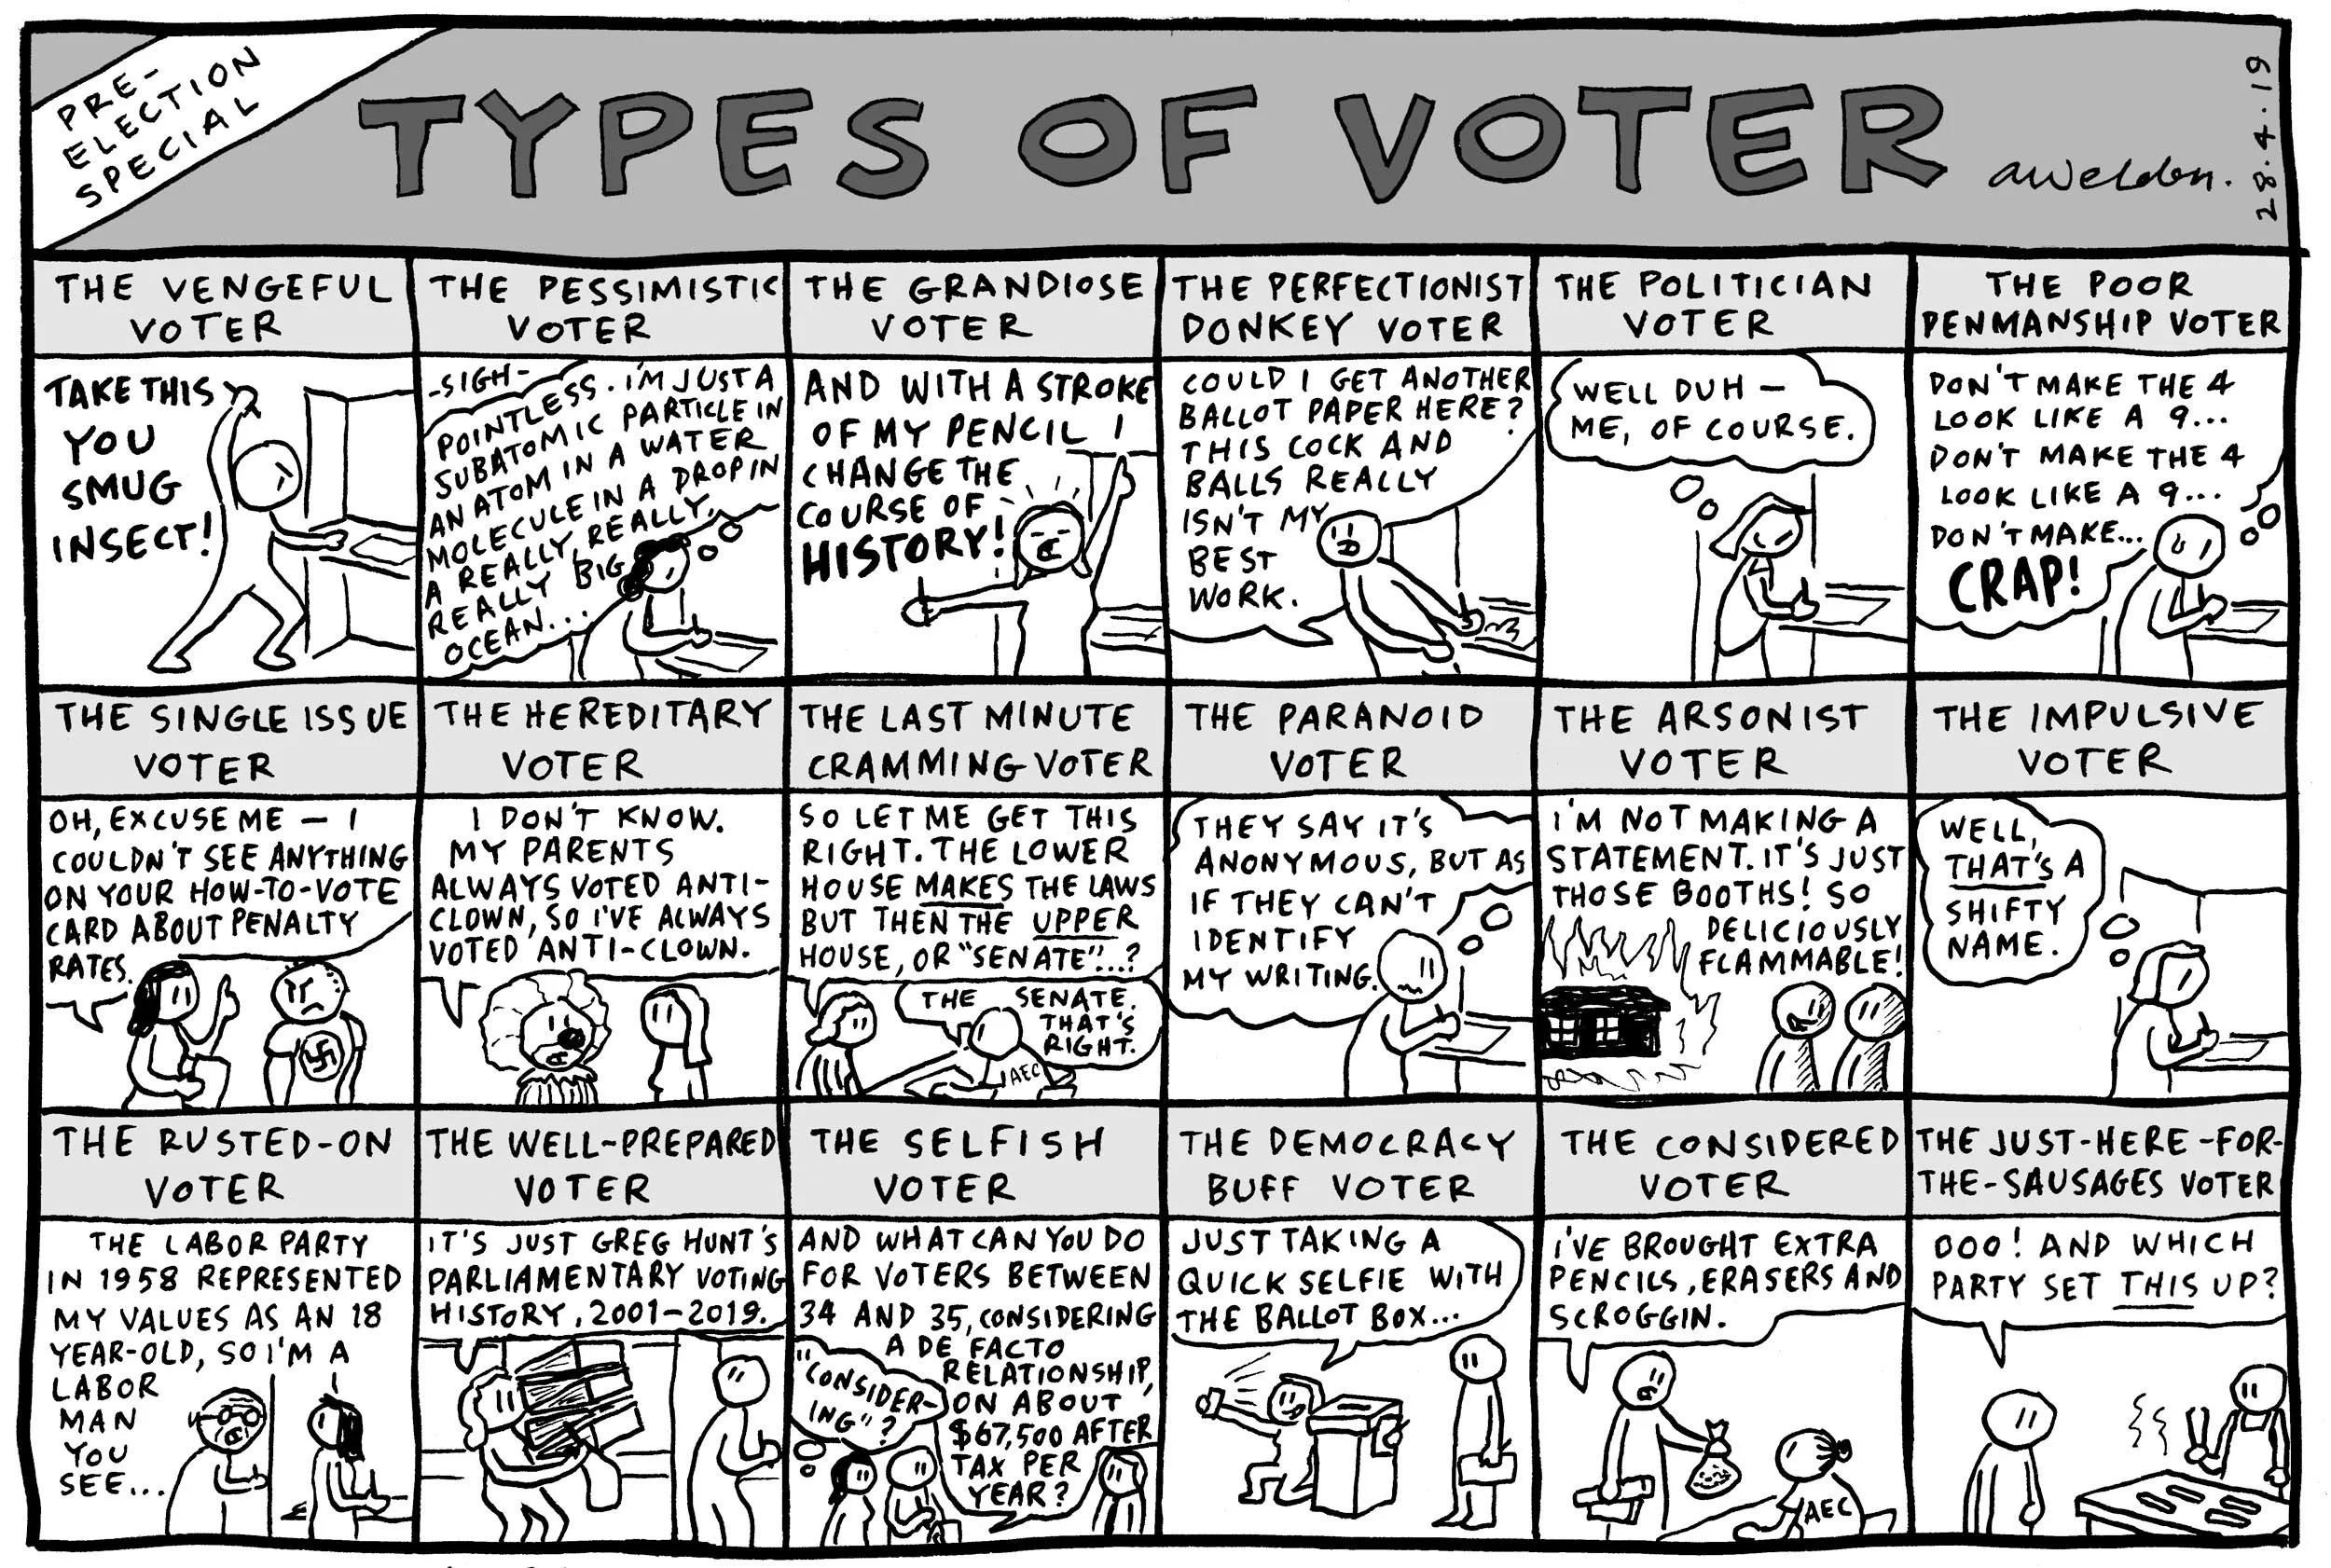 PRE-
ELECTION
SPECIAL
TYPES OF VOTER
awelden.
28.4.19
THE VENGEFUL
VOTER
TAKE THIS
YOU
SMUG
INSECT!
THE PESSIMISTIC
VOTER
-SIGH-
POINTLESS. I'M JUST A
SUBATOMIC PARTICLE IN
AN ATOM IN A WATER
MOLECULE IN A DROP IN
A REALLY, REALLY,
REALLY BIG
OCEAN...
THE GRANDIOSE
VOTER
AND WITH A STROKE
OF MY PENCIL I
CHANGE THE
COURSE OF
HISTORY!
THE PERFECTIONIST
DONKEY VOTER
COULD I GET ANOTHER
BALLOT PAPER HERE?
THIS COCK AND
BALLS REALLY
ISN'T MY
BEST
WORK.
THE POLITICIAN
VOTER
WELL DUH —
ME, OF COURSE.
THE POOR
PENMANSHIP VOTER
DON'T MAKE THE 4
LOOK LIKE A 9...
DON'T MAKE THE 4
LOOK LIKE A 9...
DON'T MAKE...
CRAP!
THE SINGLE ISSUE
VOTER
OH, EXCUSE ME — I
COULDN'T SEE ANYTHING
ON YOUR HOW-TO-VOTE
CARD ABOUT PENALTY
RATES.
THE HEREDITARY
VOTER
I DON'T KNOW.
MY PARENTS
ALWAYS VOTED ANTI-
CLOWN, SO I'VE ALWAYS
VOTED ANTI-CLOWN.
THE LAST MINUTE
CRAMMING VOTER
SO LET ME GET THIS
RIGHT. THE LOWER
HOUSE MAKES THE LAWS
BUT THEN THE UPPER
HOUSE, OR "SENATE"...?
THE SENATE.
THAT'S
RIGHT.
AEC
THE PARANOID
VOTER
THEY SAY IT'S
ANONYMOUS, BUT AS
IF THEY CAN'T
IDENTIFY
MY WRITING.
THE ARSONIST
VOTER
I'M NOT MAKING A
STATEMENT. IT'S JUST
THOSE BOOTHS! SO
DELICIOUSLY
FLAMMABLE!
THE IMPULSIVE
VOTER
WELL,
THAT'S A
SHIFTY
NAME.
THE RUSTED-ON
VOTER
THE LABOR PARTY
IN 1958 REPRESENTED
MY VALUES AS AN 18
YEAR-OLD, SO I'M A
LABOR
MAN
YOU
SEE...
THE WELL-PREPARED
VOTER
IT'S JUST GREG HUNT'S
PARLIAMENTARY VOTING
HISTORY, 2001-2019.
THE SELFISH
VOTER
AND WHAT CAN YOU DO
FOR VOTERS BETWEEN
34 AND 35, CONSIDERING
A DE FACTO
RELATIONSHIP,
ON ABOUT
$67,500 AFTER
TAX PER
YEAR?
"CONSIDER-
ING"?
THE DEMOCRACY
BUFF VOTER
JUST TAKING A
QUICK SELFIE WITH
THE BALLOT BOX...
THE CONSIDERED
VOTER
I'VE BROUGHT EXTRA
PENCILS, ERASERS AND
SCROGGIN.
AEC
THE JUST-HERE-FOR-
THE-SAUSAGES VOTER
OOO! AND WHICH
PARTY SET THIS UP?